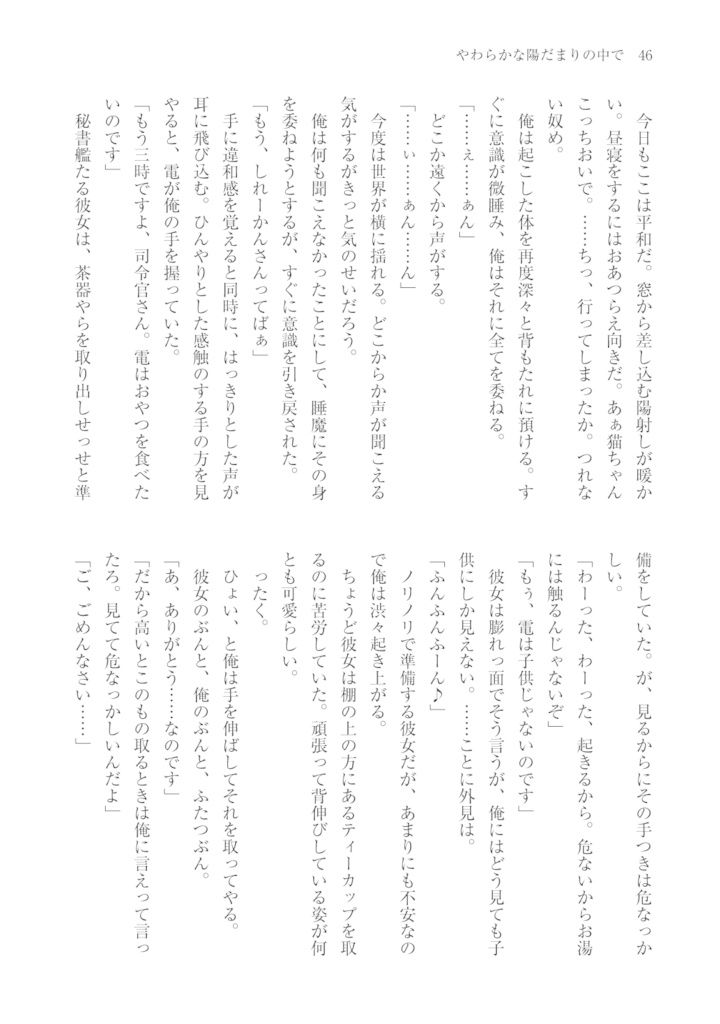 やわらかな陽だまりの中で　46
　今日もここは平和だ。窓から差し込む陽射しが暖か
い。昼寝をするにはおあつらえ向きだ。あぁ猫ちゃん
こっちおいで。……ちっ、行ってしまったか。つれな
い奴め。
　俺は起こした体を再度深々と背もたれに預ける。す
ぐに意識が微睡み、俺はそれに全てを委ねる。
「……ぇ……ぁん」
　どこか遠くから声がする。
「……ぃ……ぁん……ん」
　今度は世界が横に揺れる。どこからか声が聞こえる
気がするがきっと気のせいだろう。
　俺は何も聞こえなかったことにして、睡魔にその身
を委ねようとするが、すぐに意識を引き戻された。
「もう、しれーかんさんってばぁ」
　手に違和感を覚えると同時に、はっきりとした声が
耳に飛び込む。ひんやりとした感触のする手の方を見
やると、電が俺の手を握っていた。
「もう三時ですよ、司令官さん。電はおやつを食べた
いのです」
　秘書艦たる彼女は、茶器やらを取り出しせっせと準
備をしていた。が、見るからにその手つきは危なっか
しい。
「わーった、わーった、起きるから。危ないからお湯
には触るんじゃないぞ」
「もぅ、電は子供じゃないのです」
　彼女は膨れっ面でそう言うが、俺にはどう見ても子
供にしか見えない。……ことに外見は。
「ふんふんふーん♪」
　ノリノリで準備する彼女だが、あまりにも不安なの
で俺は渋々起き上がる。
　ちょうど彼女は棚の上の方にあるティーカップを取
るのに苦労していた。頑張って背伸びしている姿が何
とも可愛らしい。
　ったく。
　ひょい、と俺は手を伸ばしてそれを取ってやる。
　彼女のぶんと、俺のぶんと、ふたつぶん。
「あ、ありがとう……なのです」
「だから高いとこのもの取るときは俺に言えって言っ
たろ。見てて危なっかしいんだよ」
「ご、ごめんなさい……」